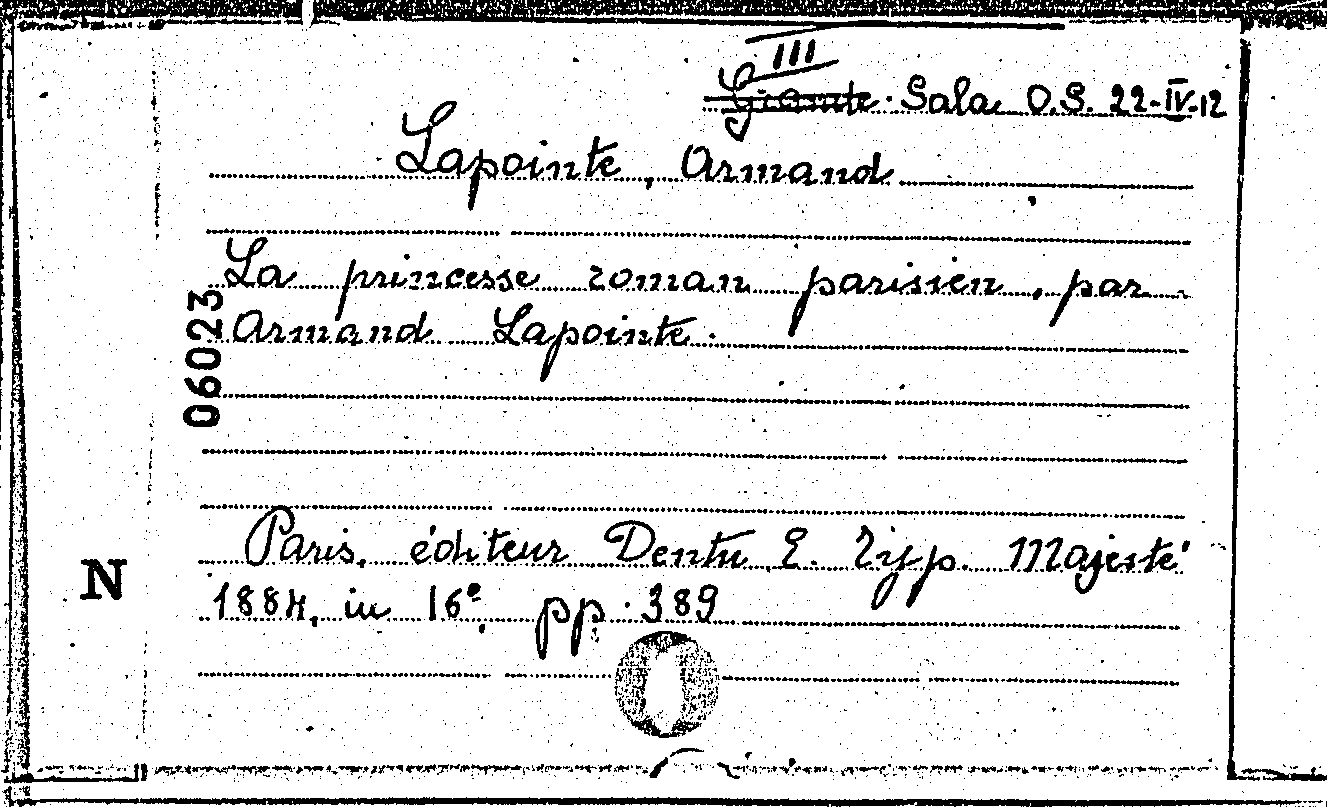 III
Sala O.S. 22-IV-12
Lapointe, Armand
La princesse roman parisien, par
Armand Lapointe.
06023
Paris, éditeur Dentu E. Typ. Majesté
N
1884, in 16º, pp. 389